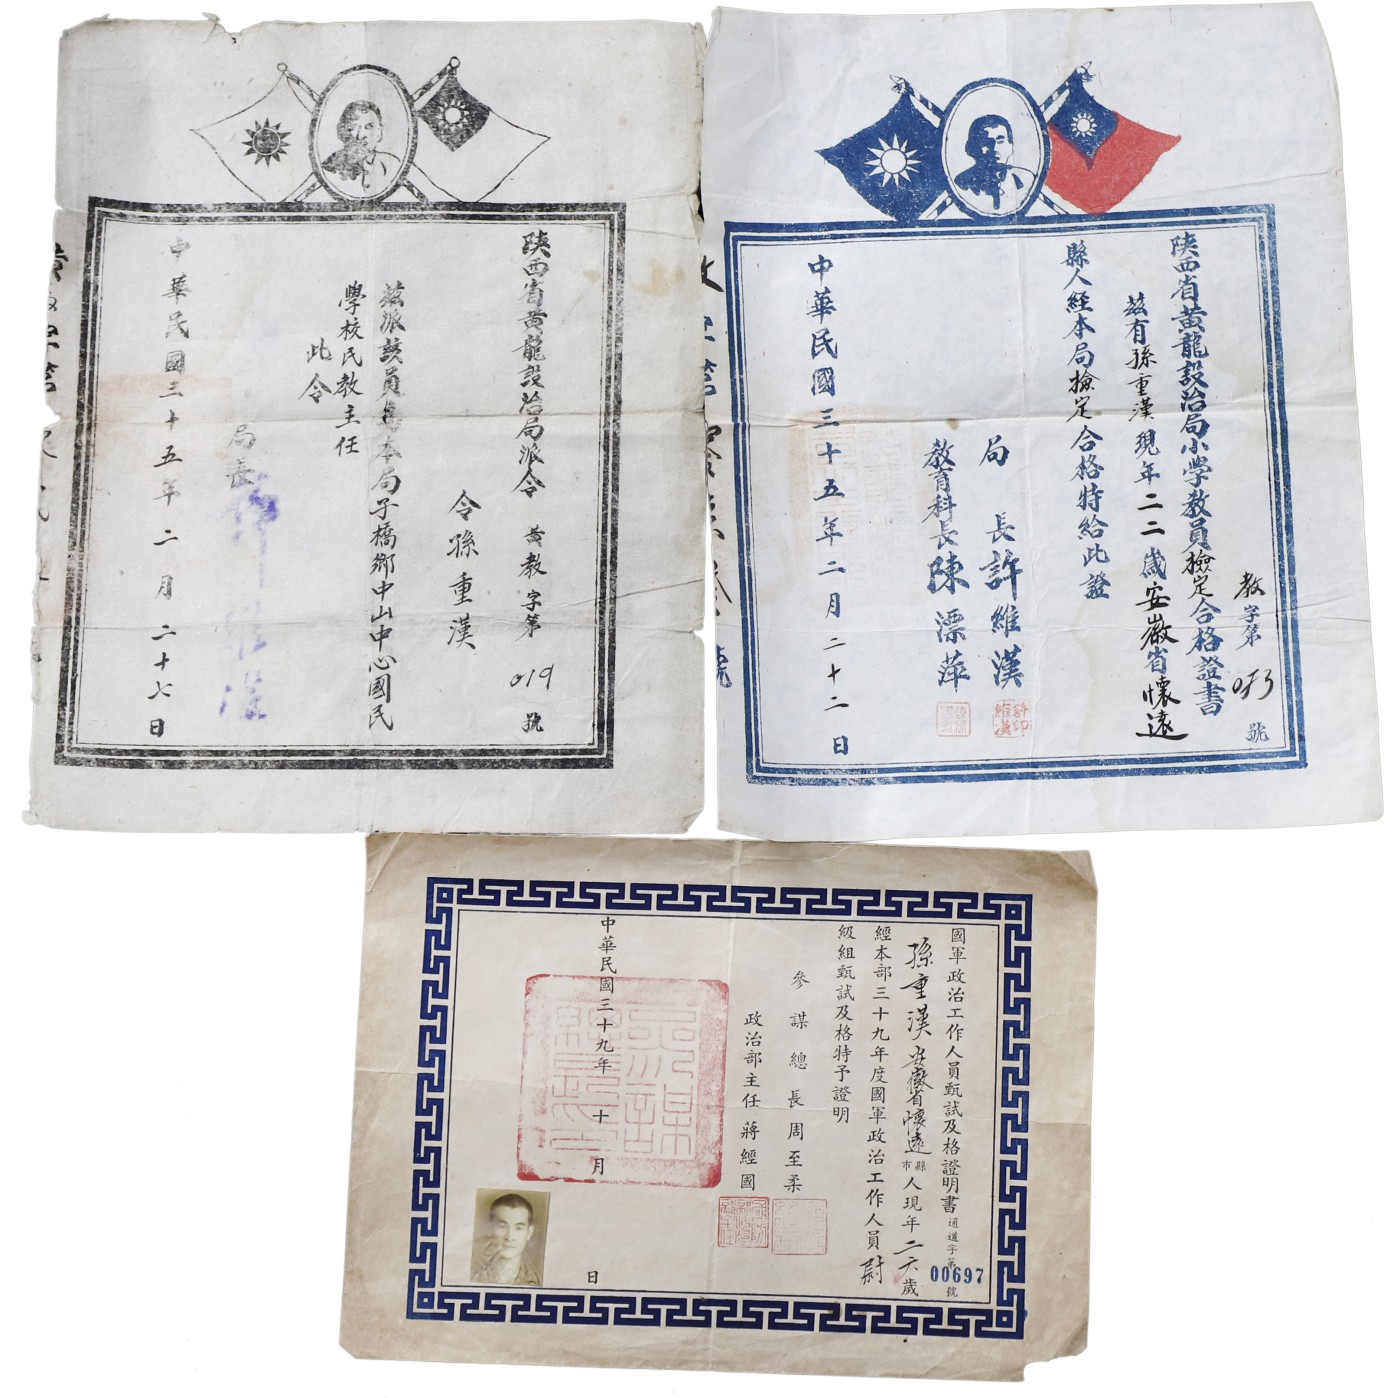 陝西省黃龍設治局派令
黃教字第019號
令孫重漢
茲派該員為本局子橋鄉中山中心國民
學校民教主任
此令
局長
中華民國三十五年二月二十七日
教字第
號
陝西省黃龍設治局小學教員檢定合格證書
茲有孫重漢現年二二歲安徽省懷遠
縣人經本局檢定合格特給此證
局長許維漢
教育科長陳漂萍
中華民國三十五年二月二十二日
國軍政治工作人員甄試及格證明書
通道字第00697號
孫重漢安徽省懷遠縣市人現年二六歲
經本部三十九年度國軍政治工作人員尉
級組甄試及格特予證明
參謀總長周至柔
政治部主任蔣經國
中華民國三十九年十月日